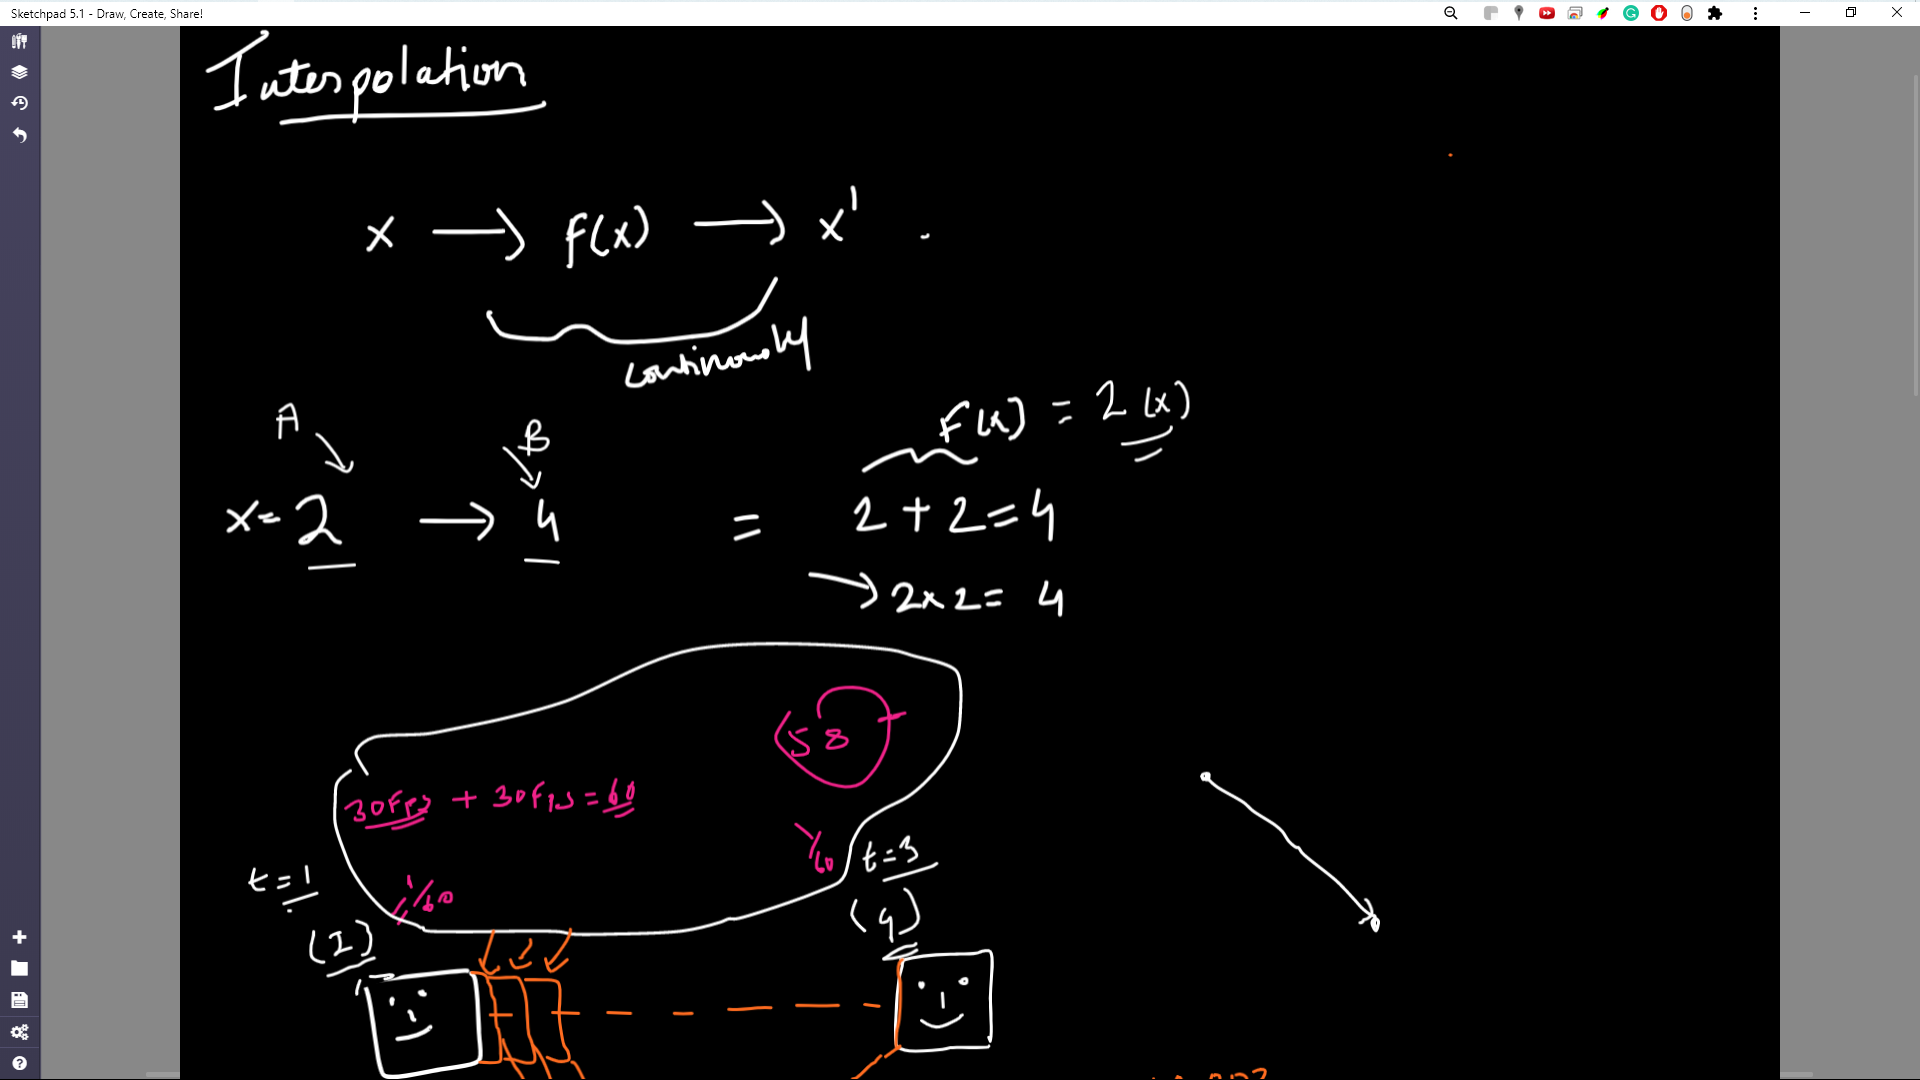 Sketchpad 5.1 - Draw, Create, Share!
Interpolation
x → f(x) → x'
continuously
A
B
f(x) = 2(x)
x = 2 → 4 = 2 + 2 = 4
→ 2 x 2 = 4
(58
30 Fps + 30 Fps = 60
1/60
t = 3
t = 1
1/60
(I)